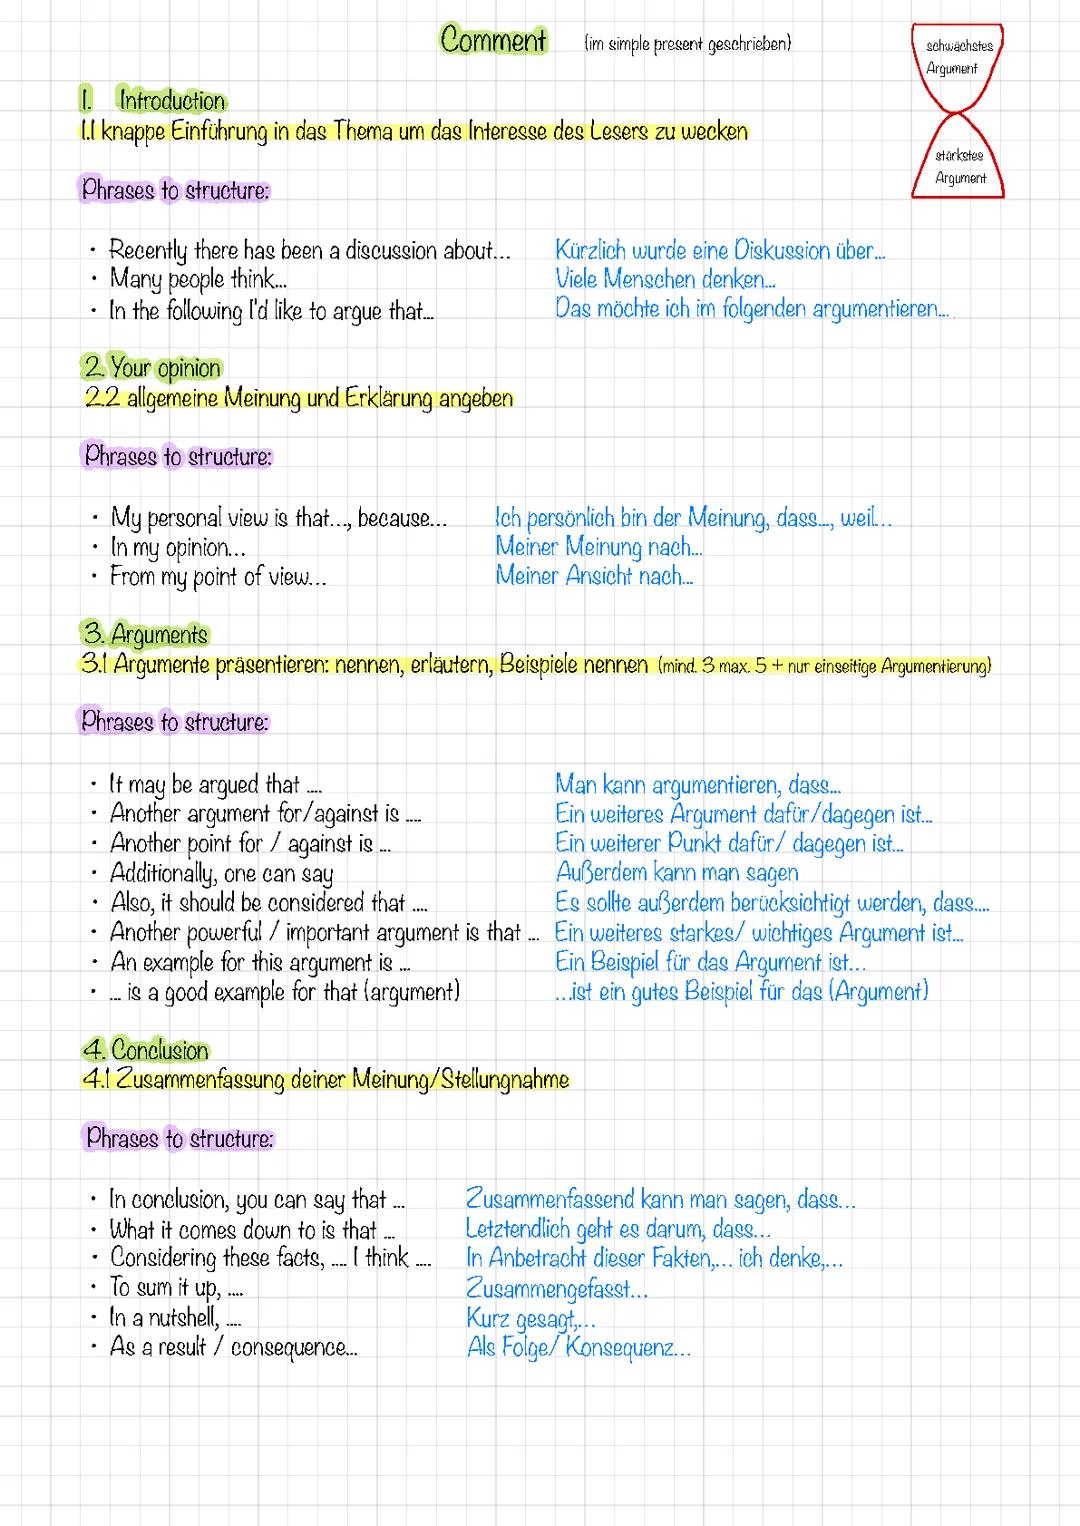 Comment (im simple present geschrieben)
schwächstes
Argument
stärkstes
Argument
1. Introduction
1.1 knappe Einführung in das Thema um das Interesse des Lesers zu wecken
Phrases to structure:
• Recently there has been a discussion about... Kürzlich wurde eine Diskussion über...
• Many people think... Viele Menschen denken...
• In the following I'd like to argue that... Das möchte ich im folgenden argumentieren...
2. Your opinion
2.2 allgemeine Meinung und Erklärung angeben
Phrases to structure:
• My personal view is that..., because... Ich persönlich bin der Meinung, dass..., weil...
• In my opinion... Meiner Meinung nach...
• From my point of view... Meiner Ansicht nach...
3. Arguments
3.1 Argumente präsentieren: nennen, erläutern, Beispiele nennen (mind. 3 max. 5 + nur einseitige Argumentierung)
Phrases to structure:
• It may be argued that .... Man kann argumentieren, dass...
• Another argument for/against is .... Ein weiteres Argument dafür/dagegen ist...
• Another point for / against is ... Ein weiterer Punkt dafür/ dagegen ist...
• Additionally, one can say Außerdem kann man sagen
• Also, it should be considered that .... Es sollte außerdem berücksichtigt werden, dass....
• Another powerful / important argument is that ... Ein weiteres starkes/ wichtiges Argument ist...
• An example for this argument is ... Ein Beispiel für das Argument ist...
• ... is a good example for that (argument) ...ist ein gutes Beispiel für das (Argument)
4. Conclusion
4.1 Zusammenfassung deiner Meinung/Stellungnahme
Phrases to structure:
• In conclusion, you can say that ... Zusammenfassend kann man sagen, dass...
• What it comes down to is that ... Letztendlich geht es darum, dass...
• Considering these facts, .... I think .... In Anbetracht dieser Fakten,... ich denke,...
• To sum it up, .... Zusammengefasst...
• In a nutshell, .... Kurz gesagt,...
• As a result / consequence... Als Folge/ Konsequenz...